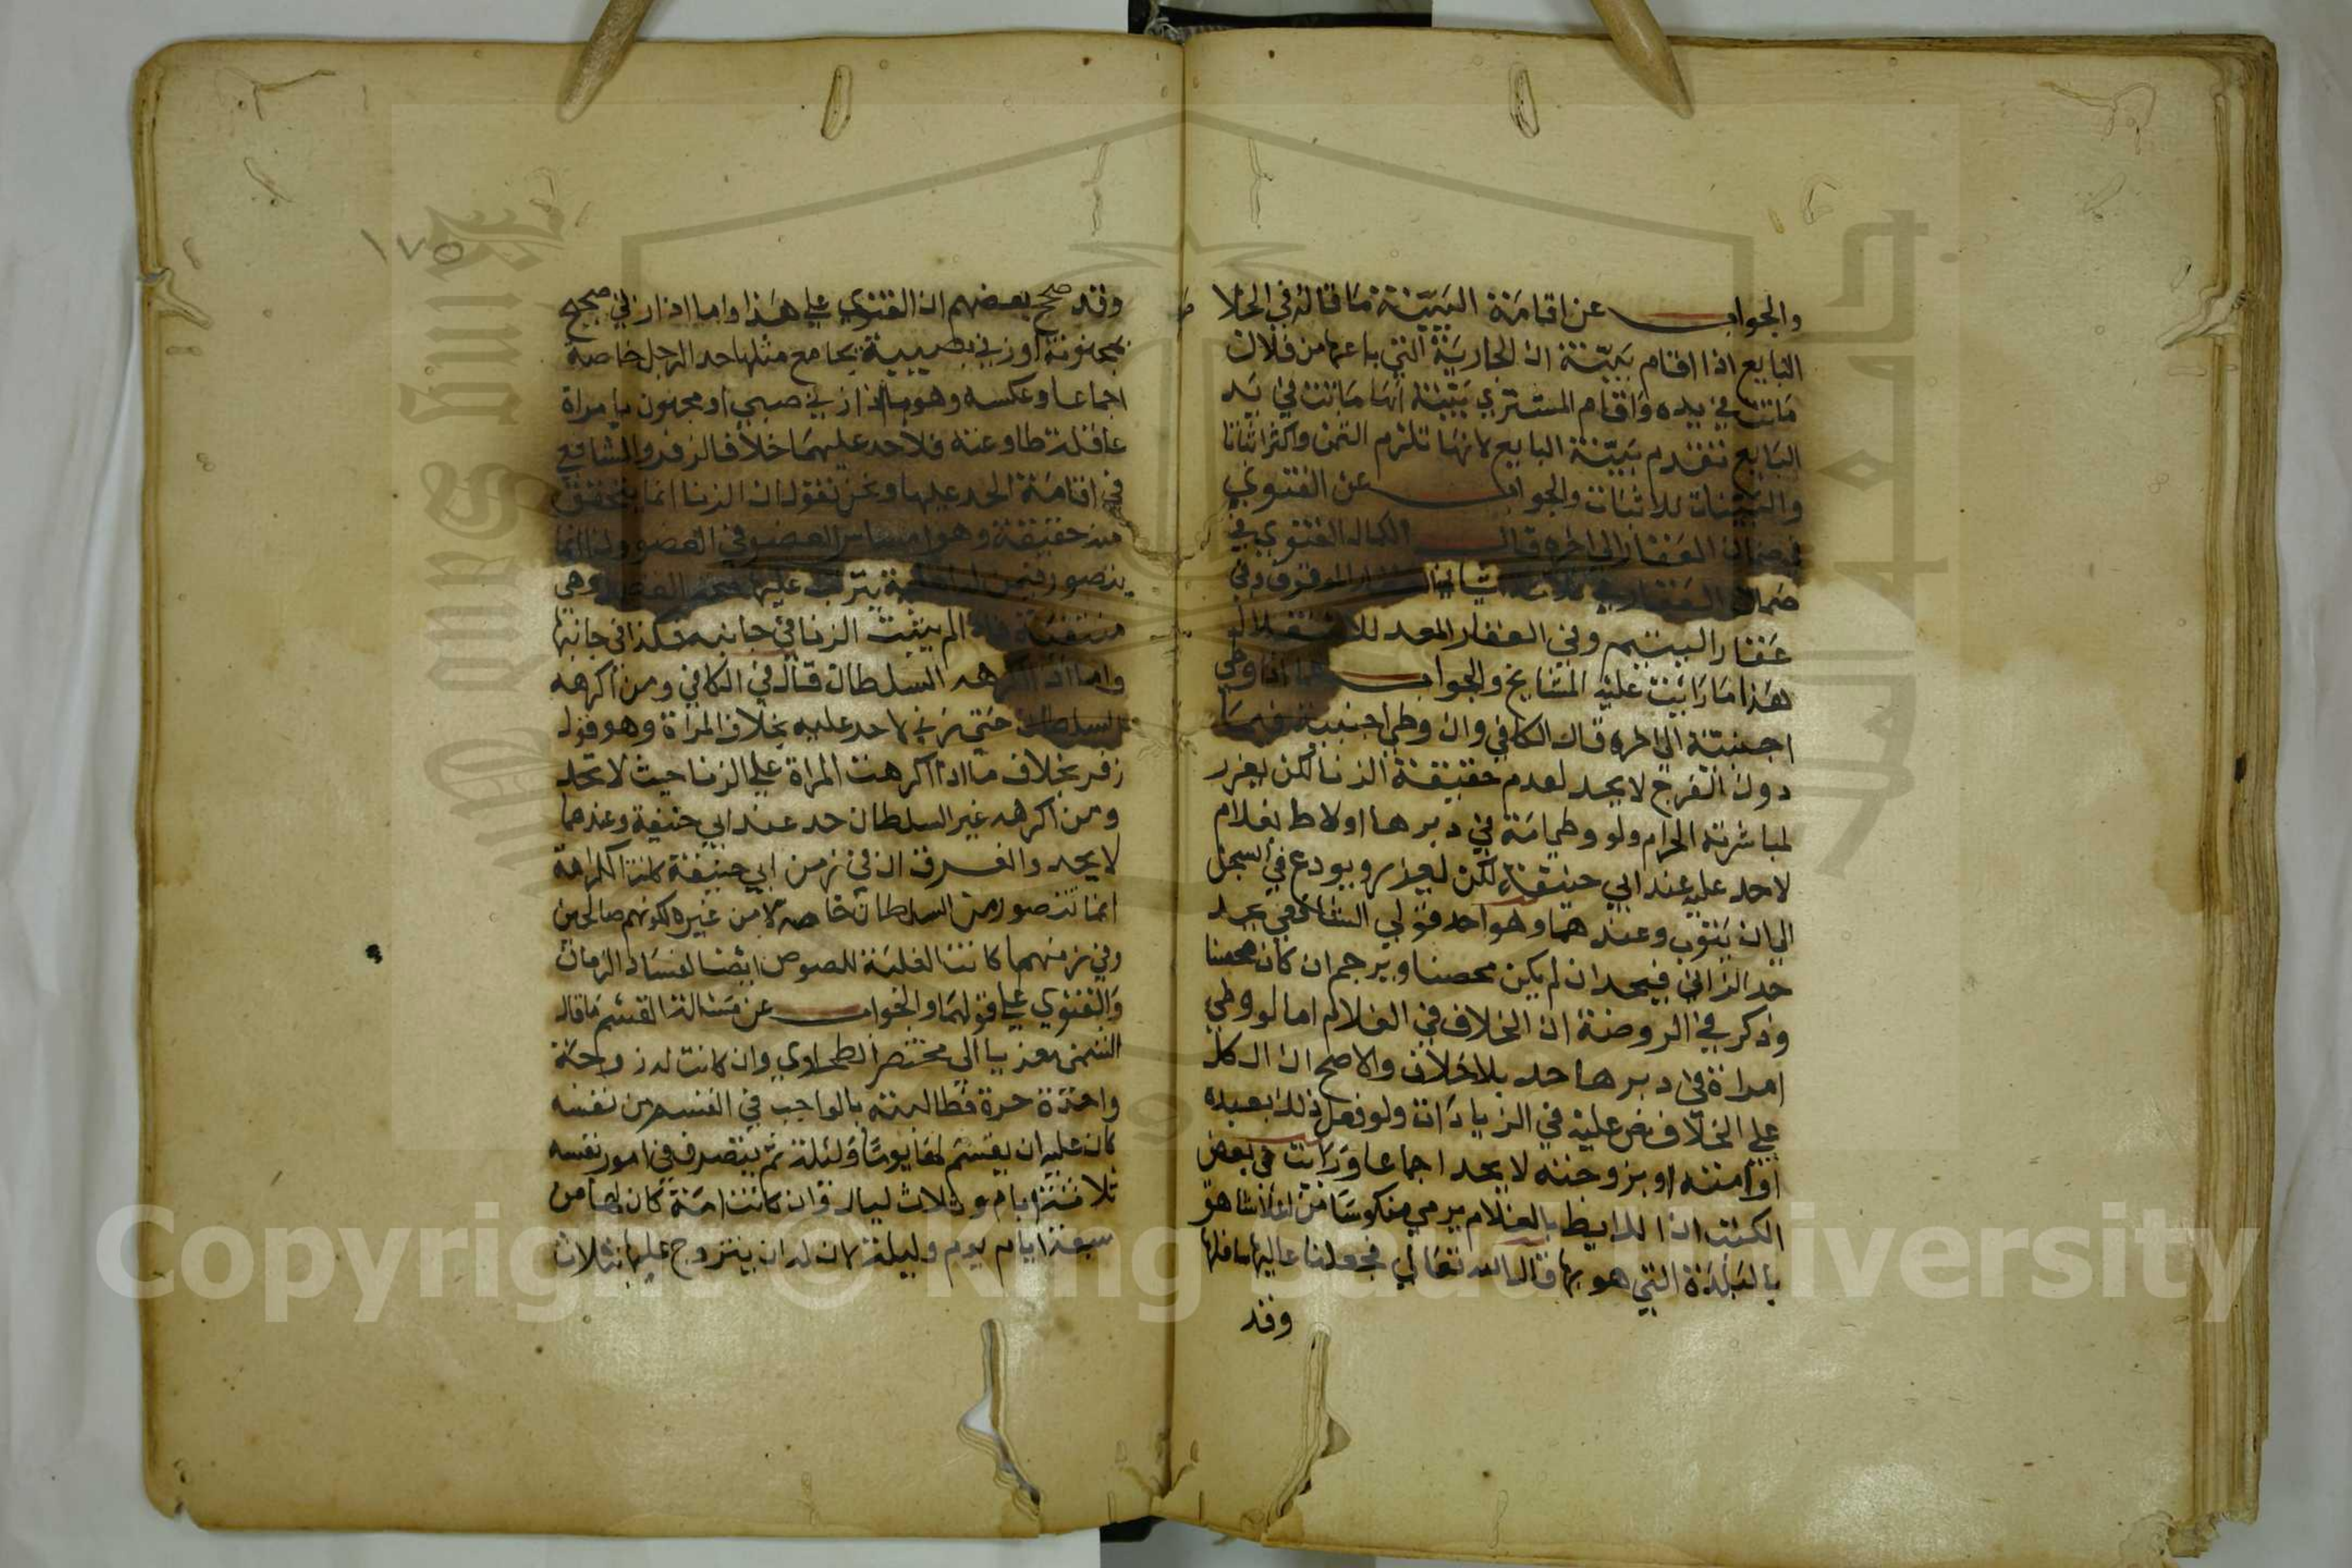 والجواب عن اقامة البينة ما قاله في الخلا
البايع اذا اقام بينة ان الجارية التي باعها من فلان
ماتت في يده واقام المشتري بينة انها ماتت في يد
البايع تقدم بينة البايع لانها تلزم الثمن واكثر اثباتا
والبينات للاثبات والجواب عن الفتوي
في ضمان العقار الى اخره قال الكمال الفتوي في
ضمان العقار في ثلاثة اشيا في العقار الموقوف وفي
عقار اليتيم وفي العقار المعد للاستغلال
هذا ما رايت عليه المشايخ والجواب عما اذا وطي
اجنبية الى اخره قال الكافي وان وطي اجنبية فيما
دون الفرج لا يحد لعدم حقيقة الزنا لكن يعزر
لمباشرته الحرام ولو وطي امة في دبرها او لاط بغلام
لا حد عليه عند ابي حنيفة لكن يعزر ويودع في السجن
الى ان يتوب وعندهما وهو احد قولي الشافعي يحد
حد الزاني فيحد ان لم يكن محصنا ويرجم ان كان محصنا
وذكر في الروضة ان الخلاف في الغلام اما لو وطي
امراة في دبرها حد بلا خلاف والاصح ان الكل
علي الخلاف نص عليه في الزيادات ولو فعل ذلك بعبده
او امته او بزوجته لا يحد اجماعا ورايت في بعض
الكتب ان اللايط بالغلام يرمي منكوسا من اعلا شاهق
بالبلدة التي هو بها قال الله تعالي فجعلنا عاليها سافلها
وقد
١٧٥
وقد صحح بعضهم ان الفتوي علي هذا واما اذا زني صحيح
بمجنونة او زني بصبية يجامع مثلها حد الرجل خاصة
اجماعا وعكسه وهو ما اذا زني صبي او مجنون بامراة
عاقلة طاوعته فلا حد عليهما خلافا لزفر والشافعي
في اقامة الحد عليها ونحن نقول ان الزنا انما يتحقق
منه حقيقة وهو امساس العضو في العضو وانما
يتصور فيمن يترتب عليها وهي
منتفية لم يثبت الزنا في جانبه فكذا في جانبها
واما اذا اكرهه السلطان قال في الكافي ومن اكرهه
السلطان حتي زني لا حد عليه بخلاف المراة وهو قول
زفر بخلاف ما اذا اكرهت المراة علي الزنا حيث لا تحد
ومن اكرهه غير السلطان حد عند ابي حنيفة وعندهما
لا يحد والفرق ان في زمن ابي حنيفة كانت الكراهة
انما تتصور من السلطان خاصة لا من غيره لكونهم صالحين
وفي زمنهما كانت الغلبة للصوص ايضا لفساد الزمان
والفتوي علي قولهما والجواب عن مسالة القسم ما قاله
الشمني معزيا الي مختصر الطحاوي وان كانت له زوجة
واحدة حرة فطالبته بالواجب في القسم من نفسه
كان عليه ان يقسم لها يوما وليلة ثم يتصرف في امور نفسه
ثلاثة ايام وثلاث ليال وان كانت امة كان لها من
سبعة ايام يوم وليلة لان له ان يتزوج عليها بثلاث
Copyright © King Saud University